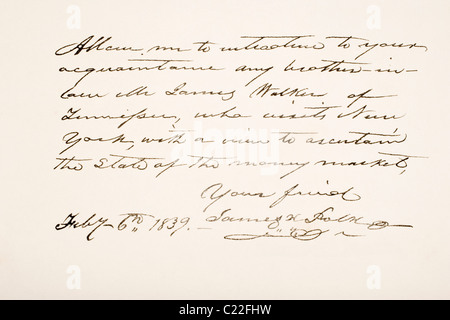 Allow me to introduce to your
acquaintance my brother-in-
law Mr James Walker of
Tennessee, who visits New
York, with a view to ascertain
the State of the money market,
Your friend
Feby 6th 1839.— James K Polk
alamy
Image ID: C22FHW
www.alamy.com